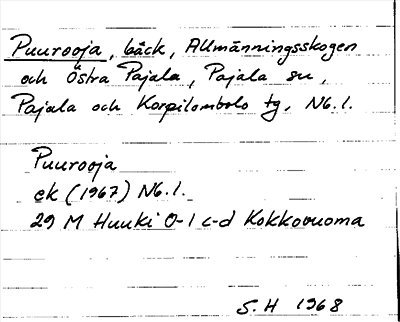 Puurooja, bäck, Allmänningsskogen
och Östra Pajala, Pajala sn,
Pajala och Korpilombolo tg, Nb. l.
Puurooja
ek (1967) Nb. l.
29 M Huuki 0-1 c-d Kokkovuoma
S. H 1968